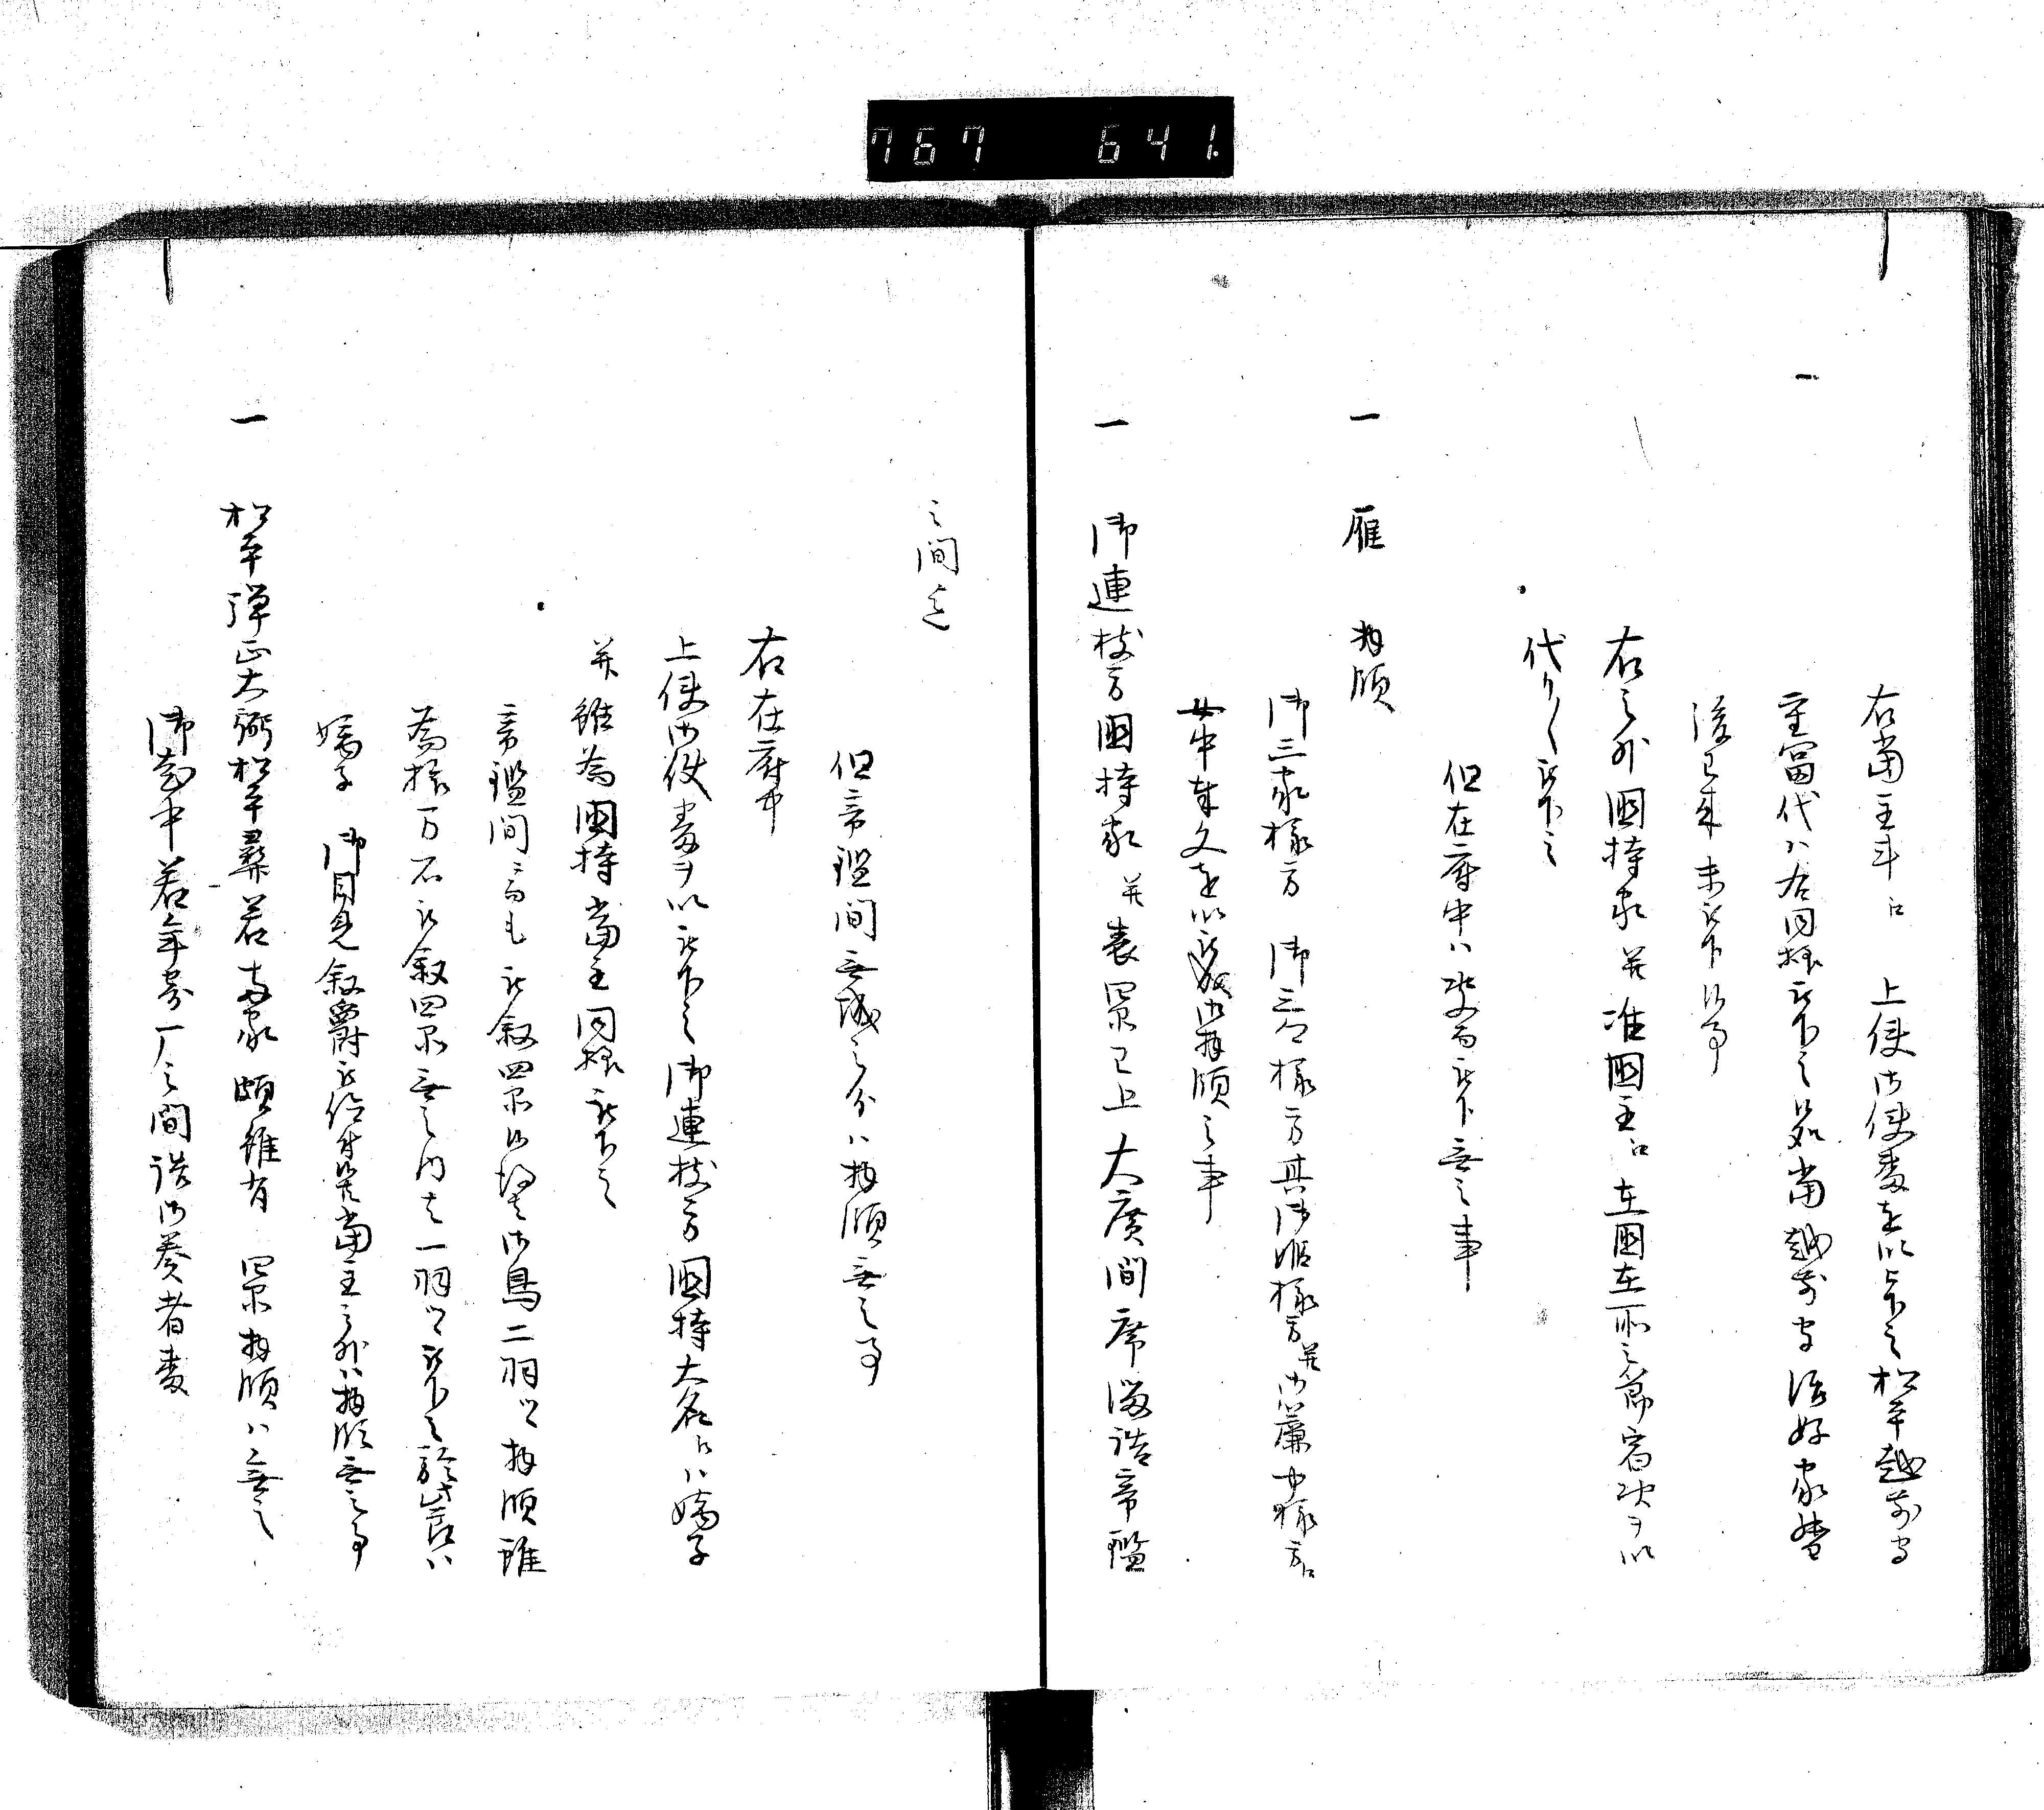 767 641.
右当主斗江 上使御使番を以被下之松平越前守
一
重冨代ハ右同様被下之処当越前守治好家督
後已来未被下候事
右之外国持家并准国主江在国在所之節宿次ヲ以
代り〱被下之
但在府中ハ
被下無之事
一 雁 拝領
御三家様方 御三卿様方其御姫様方并御簾中様方江
女中奉文を以
御拝領之事
一 御連枝方国持家并表四品已上大廣間席溜詰帝鑑
之間迄
但帝鑑間無城之分ハ拝領無之事
右在府中
上使御使番ヲ以被下之御連枝方国持大名江ハ嫡子
并雖為国持当主同様被下之
帝鑑間ニ而も被叙四品候
御鳥二羽ツヽ拝領雖
為様万石被叙四品無之内も一羽ツヽ被下之
ハ
嫡子 御目見叙爵被仰付候共当主之外ハ拝領無之事
一 松平弾正大弼松平
若両家頗雖有 四品拝領ハ無之
御老中若年寄
之間詰御奏者番